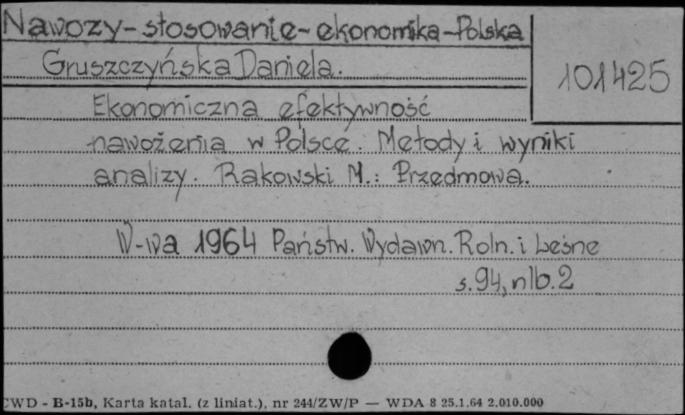 Nawozy-stosowanie-ekonomika-Polska
Gruszczyńska Daniela.
101425
Ekonomiczna efektywność
nawożenia w Polsce. Metody i wyniki
analizy. Rakowski M.: Przedmowa.
W-wa 1964 Państw. Wydawn. Roln. i Leśne
s. 94, nlb. 2
CWD - B-15b, Karta katal. (z liniat.), nr 244/ZW/P — WDA 8 25.1.64 2.010.000